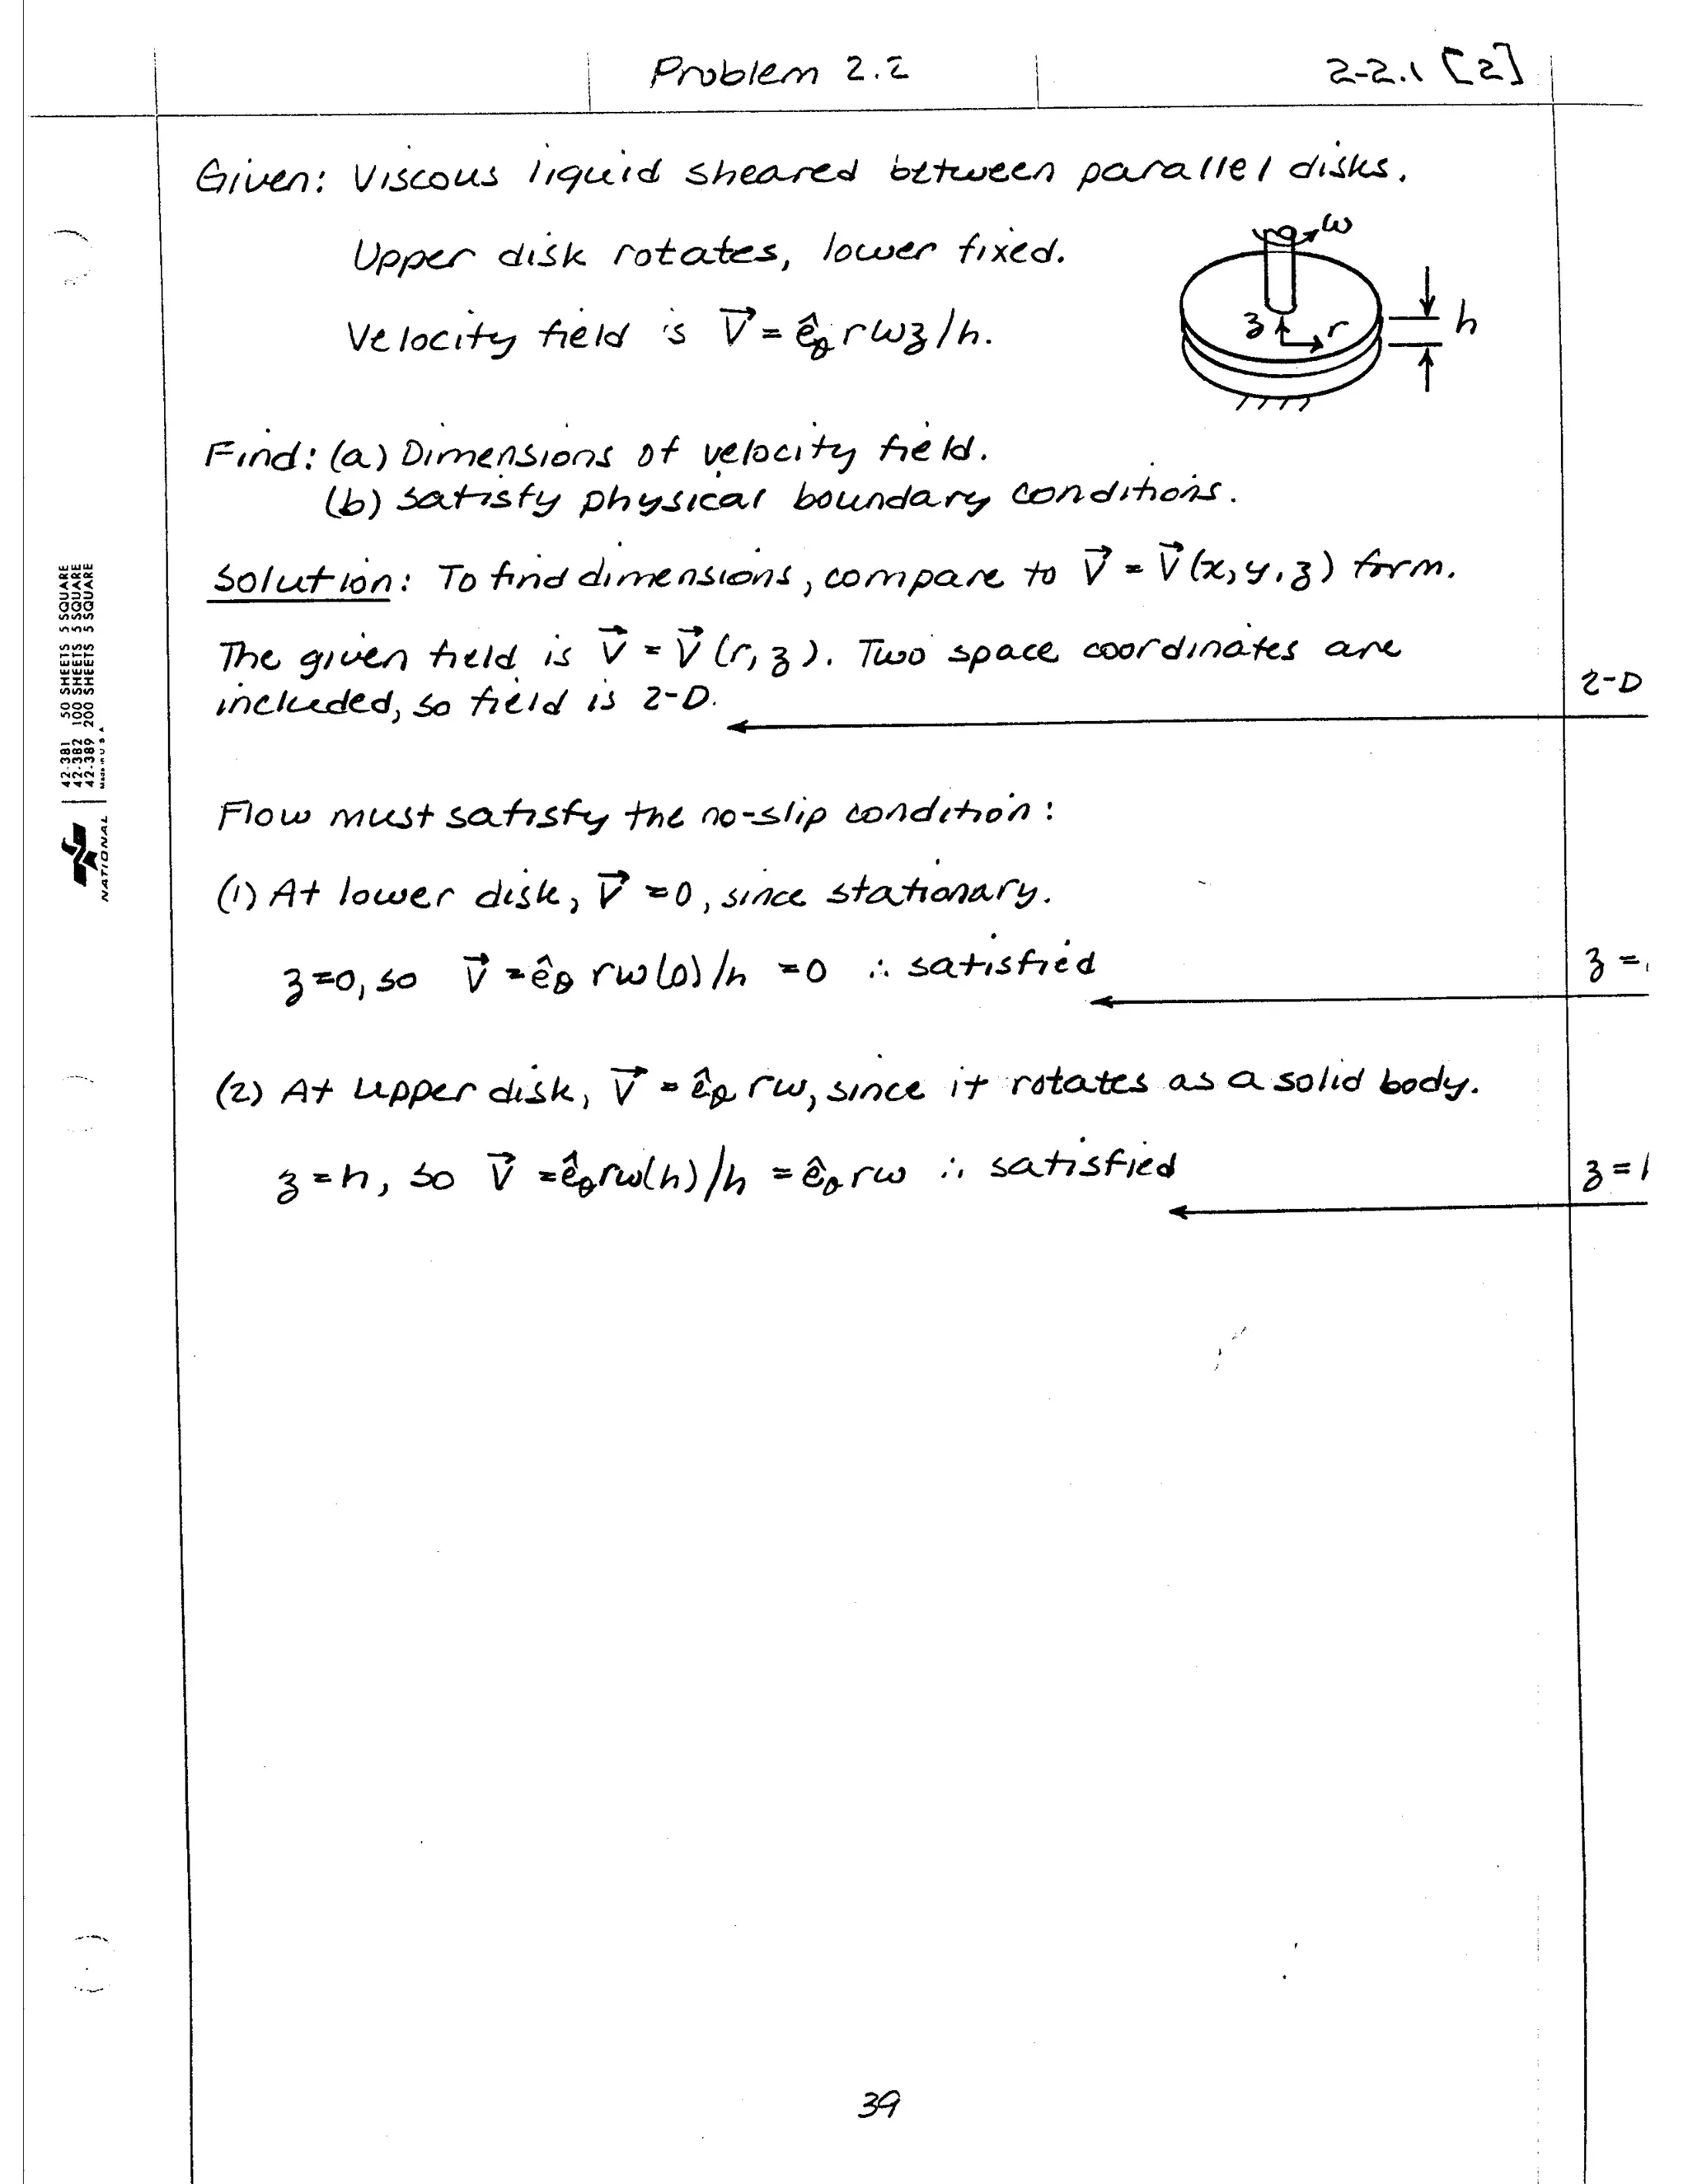 Problem 2.2
2-2.1 [2]
Given: Viscous liquid sheared between parallel disks.
Upper disk rotates, lower fixed.
Velocity field is V⃗ = ê_θ rωz/h.
ω
h
z
r
Find: (a) Dimensions of velocity field.
(b) Satisfy physical boundary conditions.
Solution: To find dimensions, compare to V⃗ = V⃗(x,y,z) form.
The given field is V⃗ = V⃗(r,z). Two space coordinates are
included, so field is 2-D.
2-D
Flow must satisfy the no-slip condition:
(1) At lower disk, V⃗ = 0, since stationary.
z=0, so V⃗ = ê_θ rω(0)/h = 0 ∴ satisfied
z =
(2) At upper disk, V⃗ = ê_θ rω, since it rotates as a solid body.
z = h, so V⃗ = ê_θ rω(h)/h = ê_θ rω ∴ satisfied
z =
42-381 50 SHEETS 5 SQUARE
42-382 100 SHEETS 5 SQUARE
42-389 200 SHEETS 5 SQUARE
Made in U S A
NATIONAL
39